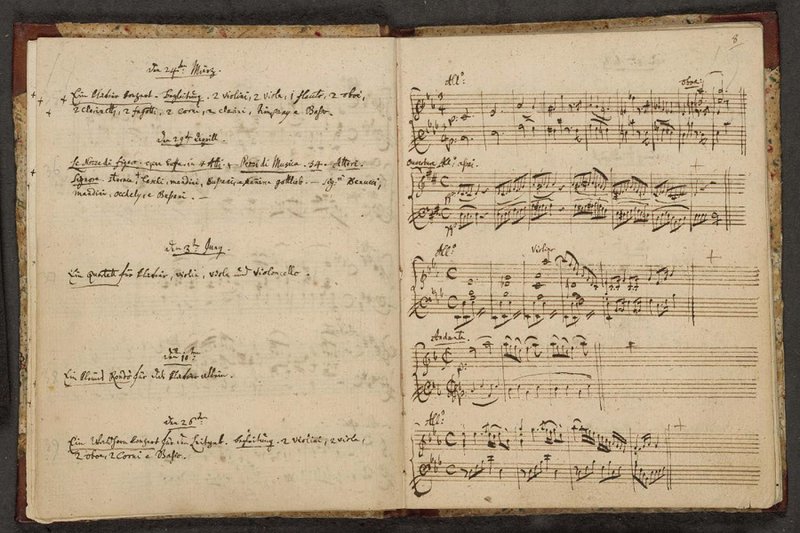 den 24:t März.
Ein klavier konzert. Begleitung. 2 violini, 2 viole, 1 flauto, 2 oboe,
2 clarinetti, 2 fagotti, 2 corni, 2 clarini, timpany e Basso.
den 29:t Aprill.
le Nozze di Figaro. opera buffa. in 4 Atti. Pezzi di Musica. 34. Attori.
Signore. storace, laschi, mandini, Bussani, e Nanina gottlieb. — Sig:ri Benucci,
mandini, occhely, e Bussani. —
den 3:t Juny.
Ein quartett für klavier, violin, viola und violoncello.
den 10:t
Ein kleines Rondò für das klavier allein.
den 26:t
Ein Waldhorn konzert für den leitgeb. Begleitung. 2 violini, 2 viole,
2 oboe, 2 Corni e Basso.
8
All:o
oboe:
p:
Ouvertura All:o assai.
pp
All:o
Violin
Andante.
p:
All:o